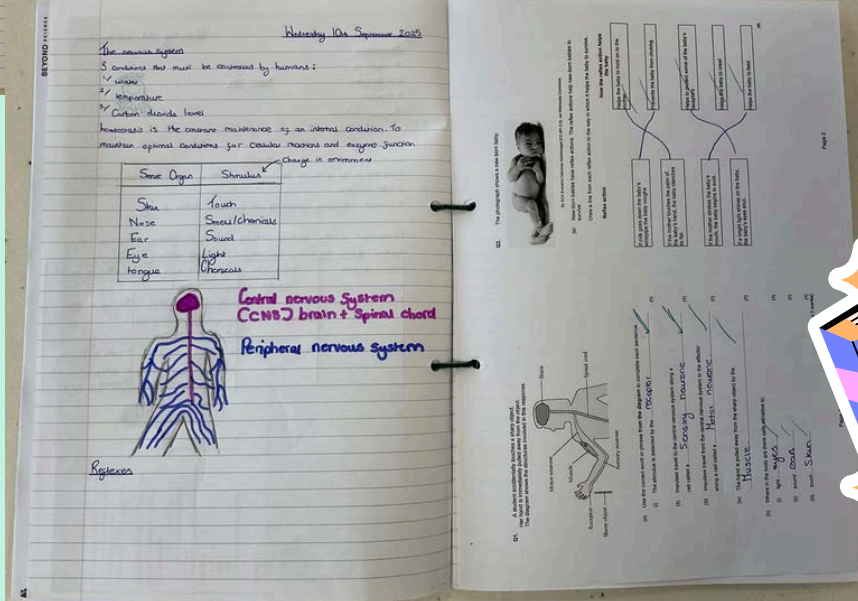 BEYOND SCIENCE
Wednesday 10th September 2025
The nervous system
3 conditions that must be controlled by humans:
1/ water
2/ temperature
3/ Carbon dioxide level
homeostasis is the constant maintenance of an internal condition. To
maintain optimal conditions for cellular reactions and enzyme function
Change in environment
Sense Organ Stimulus
Skin Touch
Nose Smell/Chemicals
Ear Sound
Eye Light
tongue Chemicals
Central nervous System
(CNS) brain + Spinal chord
Peripheral nervous system
Reflexes
Q1.
A student accidentally touches a sharp object.
Her hand is immediately pulled away from the object.
The diagram shows the structures involved in this response.
Brain
Spinal cord
Motor neurone
Muscle
Receptor
Sharp object
Sensory neurone
(a) Use the correct word or phrase from the diagram to complete each sentence.
(i) The stimulus is detected by the receptor
(1)
(ii) Impulses travel to the central nervous system along a
cell called a Sensory neurone
(1)
(iii) Impulses travel from the central nervous system to the effector
along a cell called a Motor neurone
(1)
(iv) The hand is pulled away from the sharp object by the
Muscle
(1)
(b) Where in the body are there cells sensitive to:
(i) light eyes
(1)
(ii) sound ears
(1)
(iii) touch Skin
(1)
Q2.
The photograph shows a new-born baby.
(a) New-born babies have reflex actions. The reflex actions help new-born babies to
survive.
Draw a line from each reflex action to the way in which it helps the baby to survive.
Reflex action
How the reflex action helps
the baby
If milk goes down the baby's
windpipe the baby coughs
If the mother touches the palm of
the baby's hand, the baby clenches
its fist.
If the mother strokes the baby's
mouth, the baby begins to suck.
If a bright light shines on the baby,
the baby's eyes shut.
Helps the baby to hold on to the
Prevents the baby from choking
Helps to protect some of the baby's
receptors
Helps the baby to crawl
Helps the baby to feed
(4)
Page 2